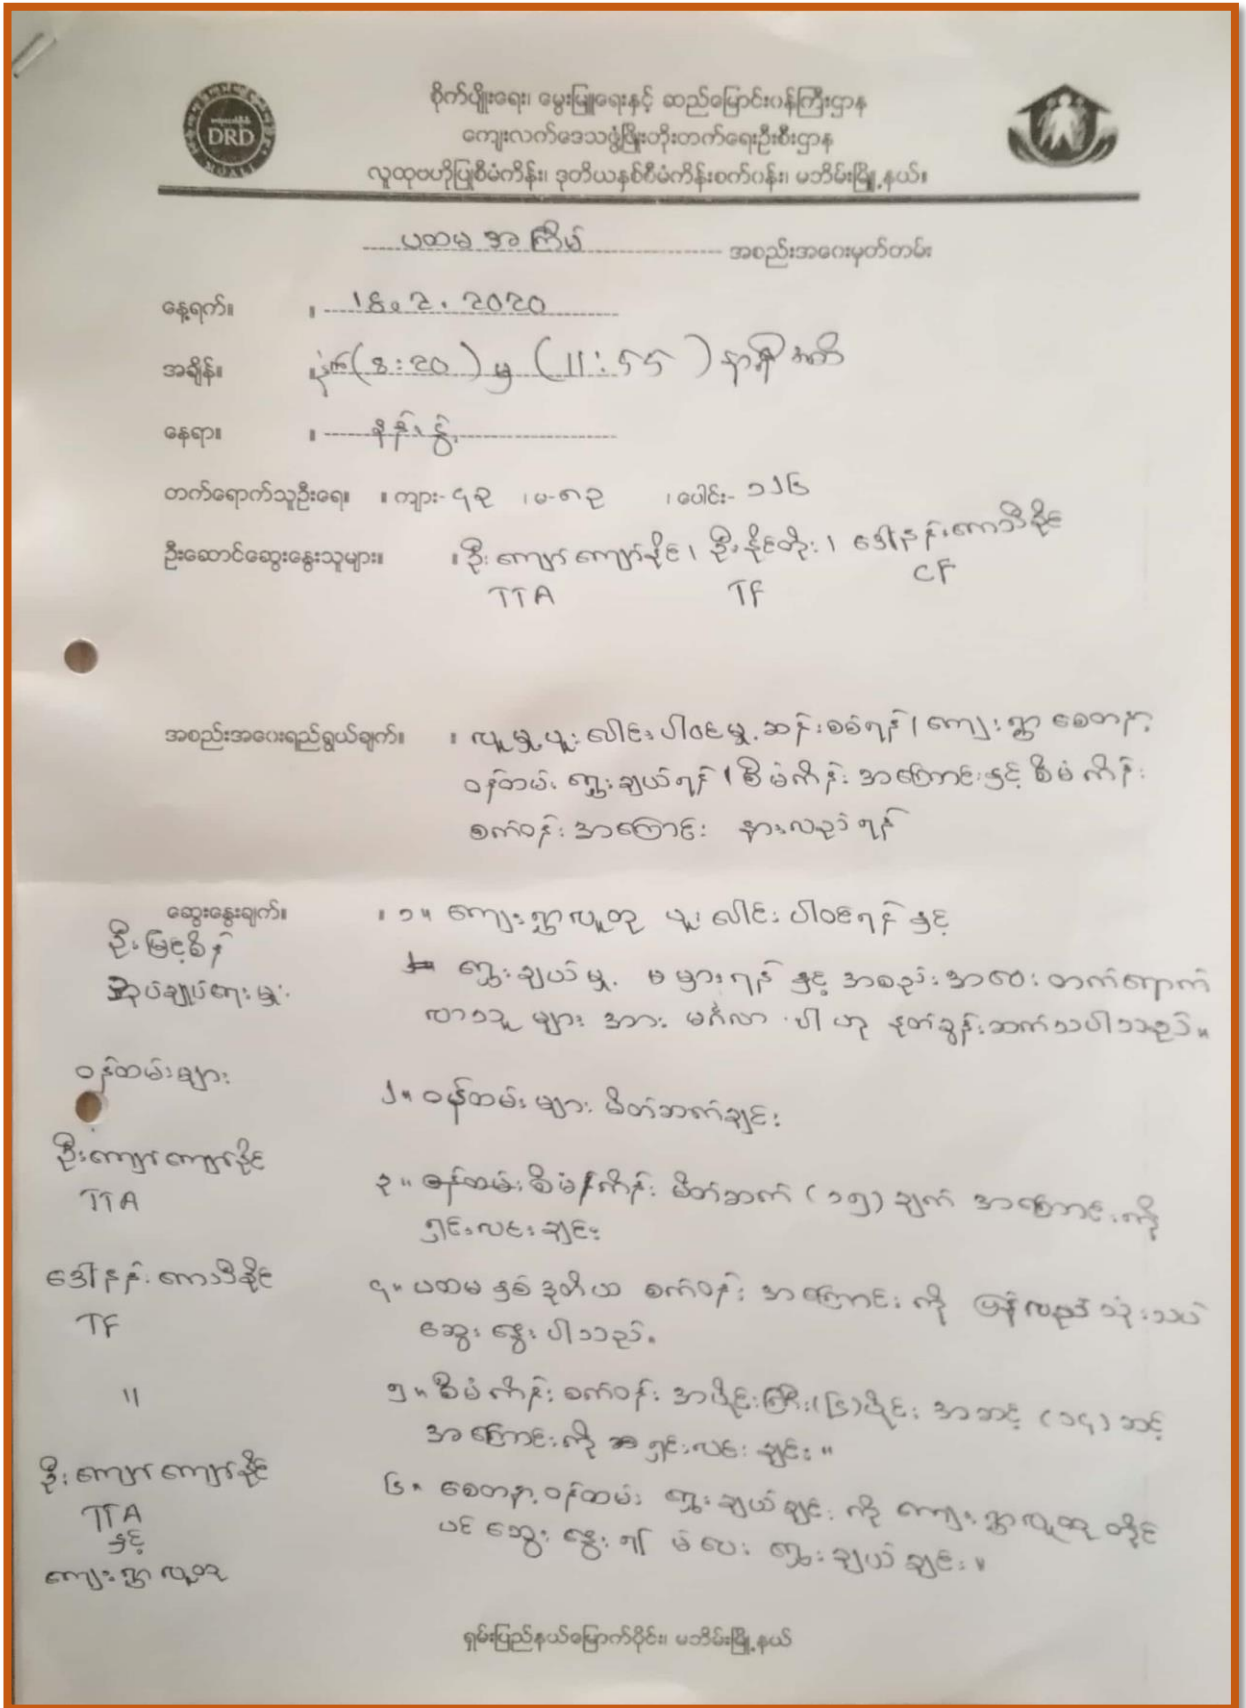 DRD
စိုက်ပျိုးရေး၊ မွေးမြူရေးနှင့် ဆည်မြောင်းဝန်ကြီးဌာန
ကျေးလက်ဒေသဖွံ့ဖြိုးတိုးတက်ရေးဦးစီးဌာန
လူထုဗဟိုပြုစီမံကိန်း၊ ဒုတိယနှစ်စီမံကိန်းစက်ဝန်း၊ မဘိမ်းမြို့နယ်။
ပထမ အကြိမ် အစည်းအဝေးမှတ်တမ်း
နေ့ရက်။ ။ 18.2.2020
အချိန်။ ။ (8:20) မှ (11:55) နာရီ အထိ
နေရာ။ ။
တက်ရောက်သူဦးရေ။ ။ ကျား- ၄၃ ၊ မ-၈၃ ၊ ပေါင်း- ၁၂၆
ဦးဆောင်ဆွေးနွေးသူများ။ ။ ဦးကျော်ကျော်နိုင်၊ ဦးနိုင်တိုး၊ ဒေါ်နန်းကေသီခိုင်
TTA TF CF
အစည်းအဝေးရည်ရွယ်ချက်။ ။ လူမှု ပူးပေါင်းပါဝင်မှု ဆန်းစစ်ရန်၊ ကျေးရွာ စေတနာ့
ဝန်ထမ်း ရွေးချယ်ရန်၊ စီမံကိန်း အကြောင်းနှင့် စီမံကိန်း
စက်ဝန်း အကြောင်း နားလည်ရန်
ဆွေးနွေးချက်။ ။ ၁။ ကျေးရွာလူထု ပူးပေါင်းပါဝင်ရန် နှင့်
ဦးမြင့်စိန်
အုပ်ချုပ်ရေးမှူး ရွေးချယ်မှု မမှားရန် နှင့် အစည်းအဝေး တက်ရောက်
လာသူများ အား မင်္ဂလာပါ ဟု နှုတ်ခွန်းဆက်သပါသည်။
ဝန်ထမ်းများ ၂။ ဝန်ထမ်းများ မိတ်ဆက်ခြင်း
ဦးကျော်ကျော်နိုင် ၃။ စီမံကိန်း မိတ်ဆက် (၁၅) ချက် အကြောင်းကို
TTA ရှင်းလင်းခြင်း
ဒေါ်နန်းကေသီခိုင် ၄။ ပထမနှစ် ဒုတိယ စက်ဝန်း အကြောင်းကို ပြန်လည်သုံးသပ်
TF ဆွေးနွေးပါသည်။
" ၅။ စီမံကိန်း စက်ဝန်း အပိုင်းကြီး(၆)ပိုင်း အဆင့် (၁၄) ဆင့်
အကြောင်းကို ရှင်းလင်းခြင်း။
ဦးကျော်ကျော်နိုင် ၆။ စေတနာ့ဝန်ထမ်း ရွေးချယ်ခြင်းကို ကျေးရွာလူထု တိုင်
TTA ပင်ဆွေးနွေး၍ မဲပေး ရွေးချယ်ခြင်း။
နှင့်
ကျေးရွာလူထု
ရှမ်းပြည်နယ်မြောက်ပိုင်း၊ မဘိမ်းမြို့နယ်